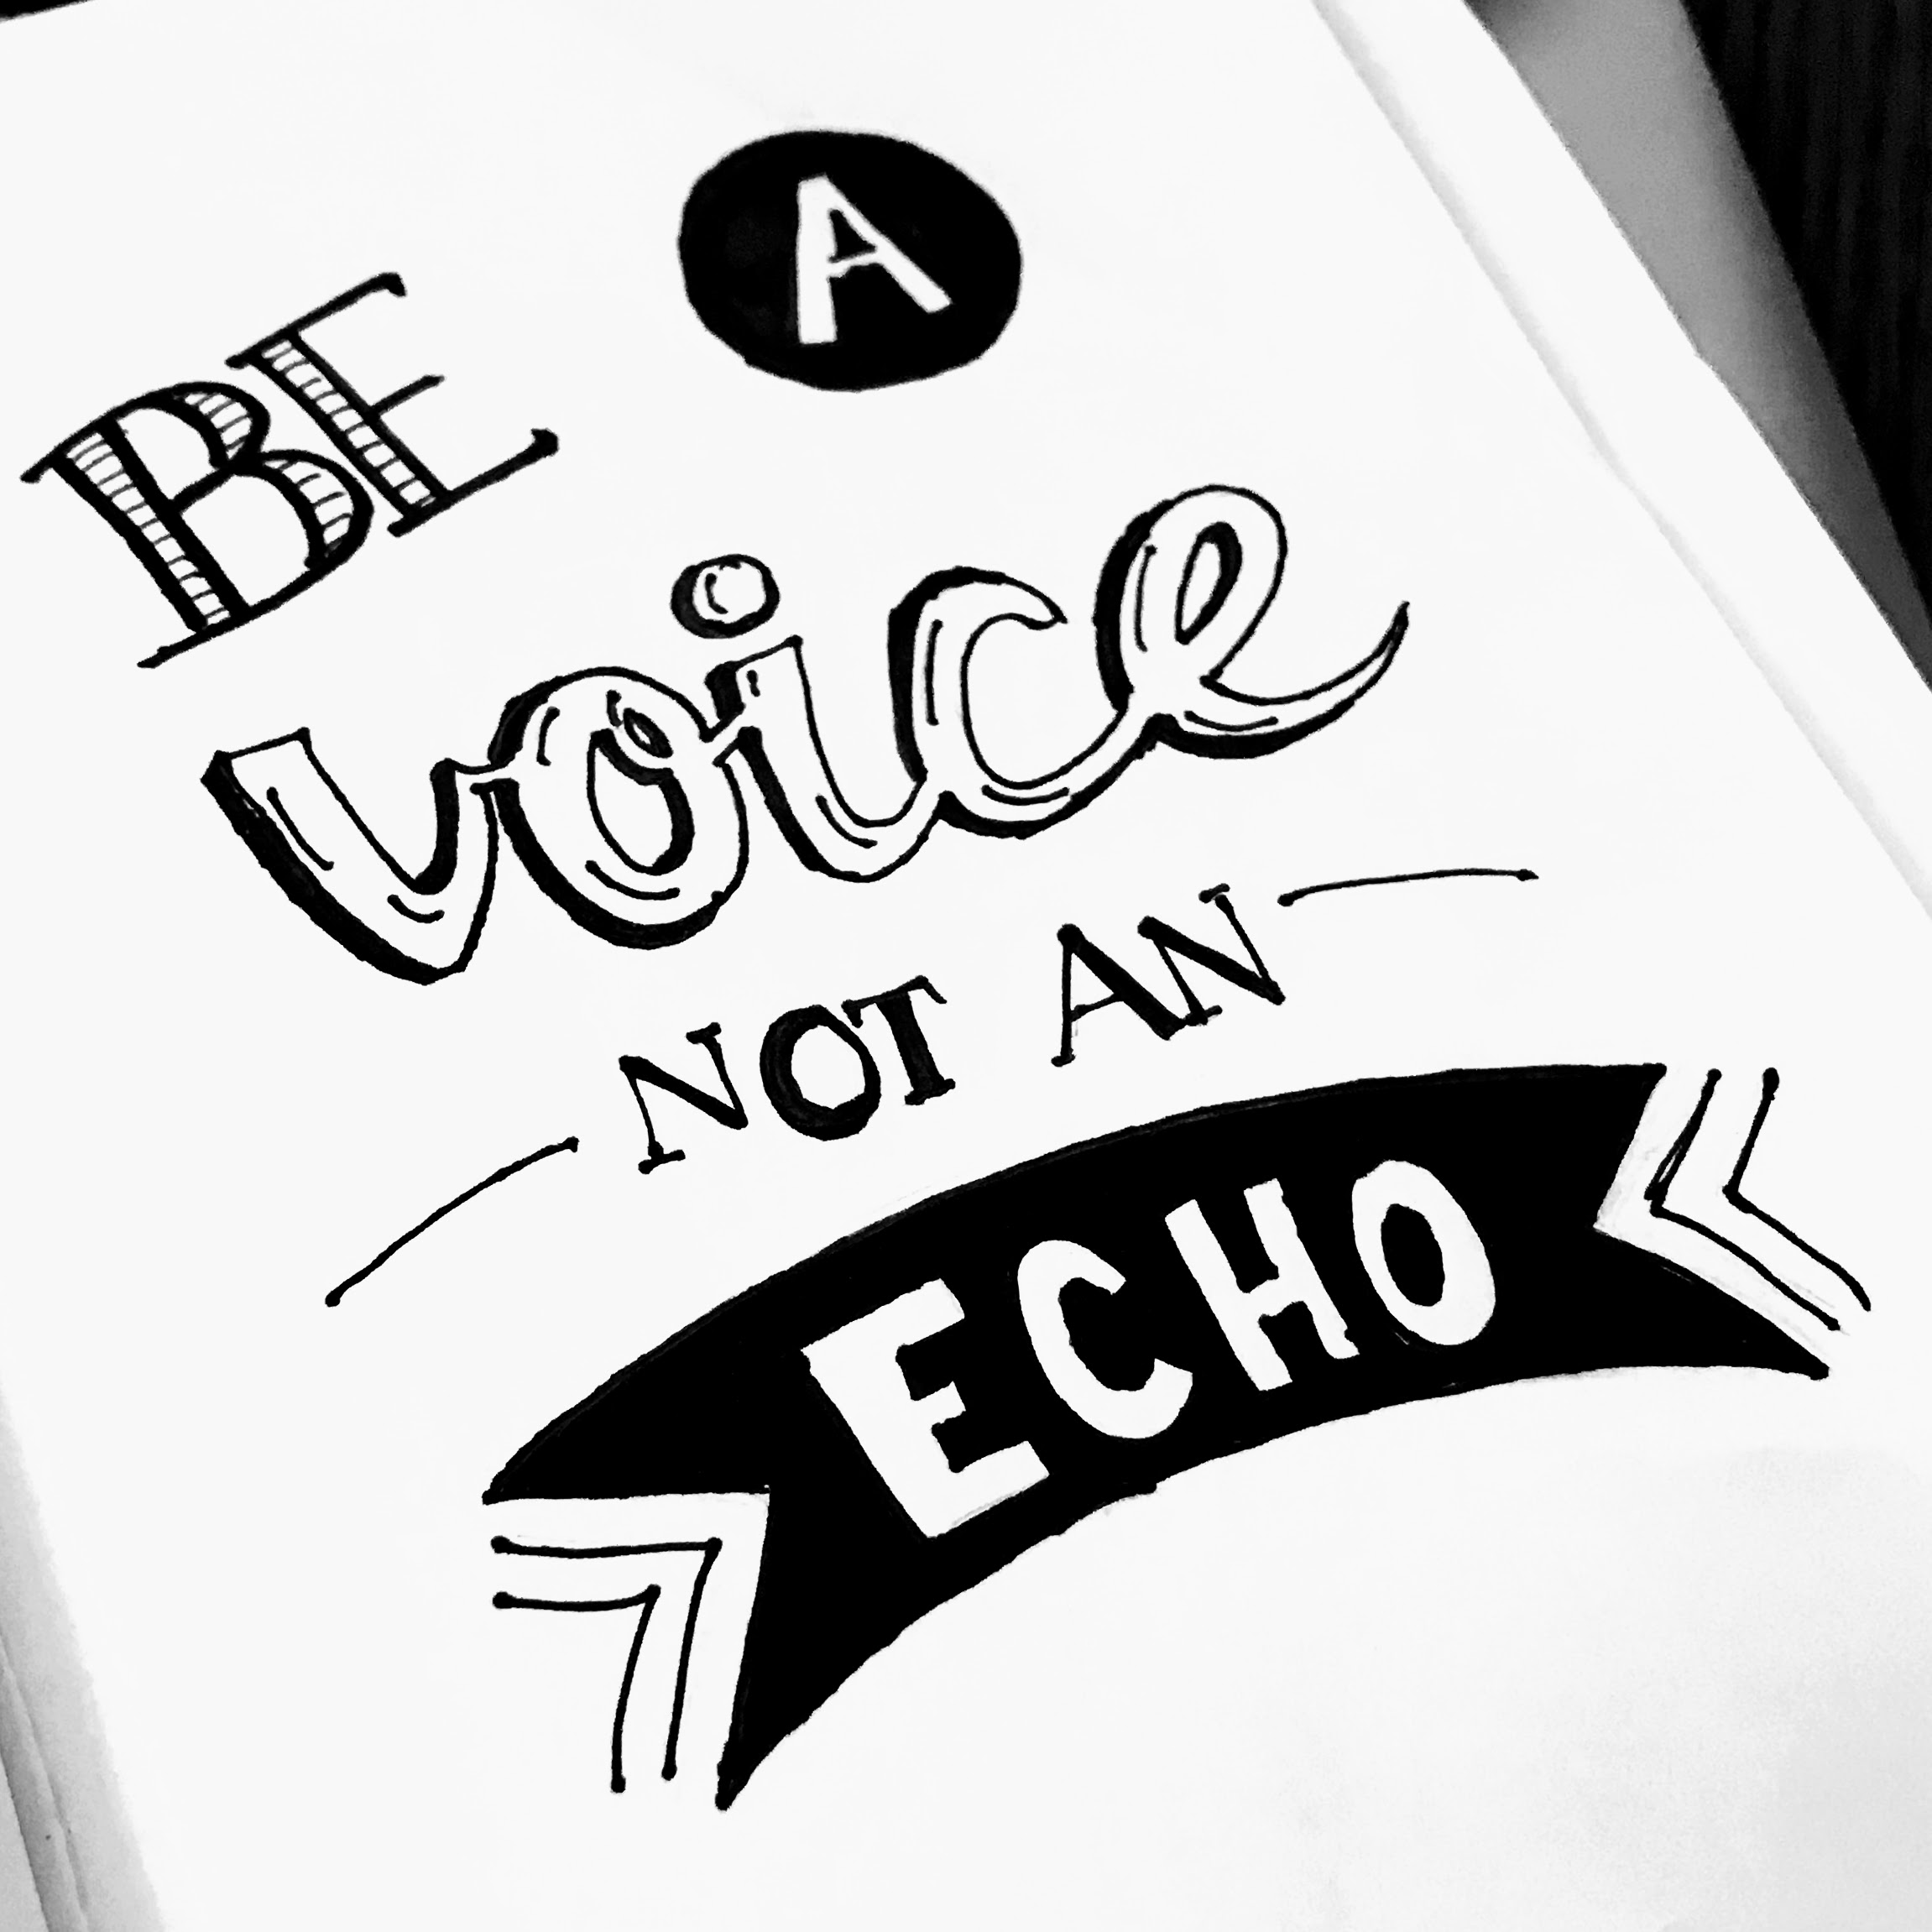 BE A
voice
NOT AN
ECHO